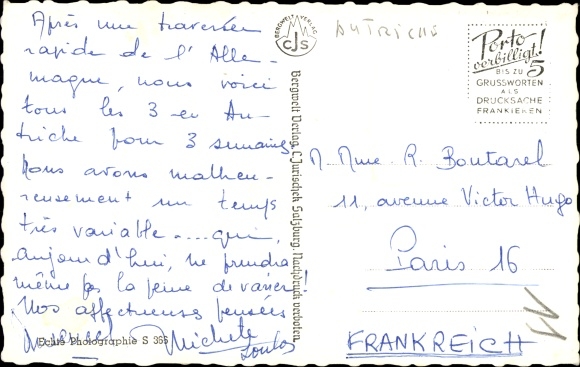 Après une traversée
rapide de l'Alle-
magne, nous voici
tous les 3 en Au-
triche pour 3 semaines,
Nous avons malheu-
reusement un temps
très variable.... qui,
aujourd'hui, ne prendra
même pas la peine de varier!
Nos affectueuses pensées
Michele
Loulou
Echte Photographie S 365
BERGWELT VERLAG
CJS
Bergwelt Verlag, C. Jurischek Salzburg, Nachdruck verboten.
AUTRICHE
Porto-
verbilligt!
BIS ZU 5
GRUSSWORTEN
ALS
DRUCKSACHE
FRANKIEREN
M. Mme R. Boutarel
11, avenue Victor Hugo
Paris 16
FRANKREICH